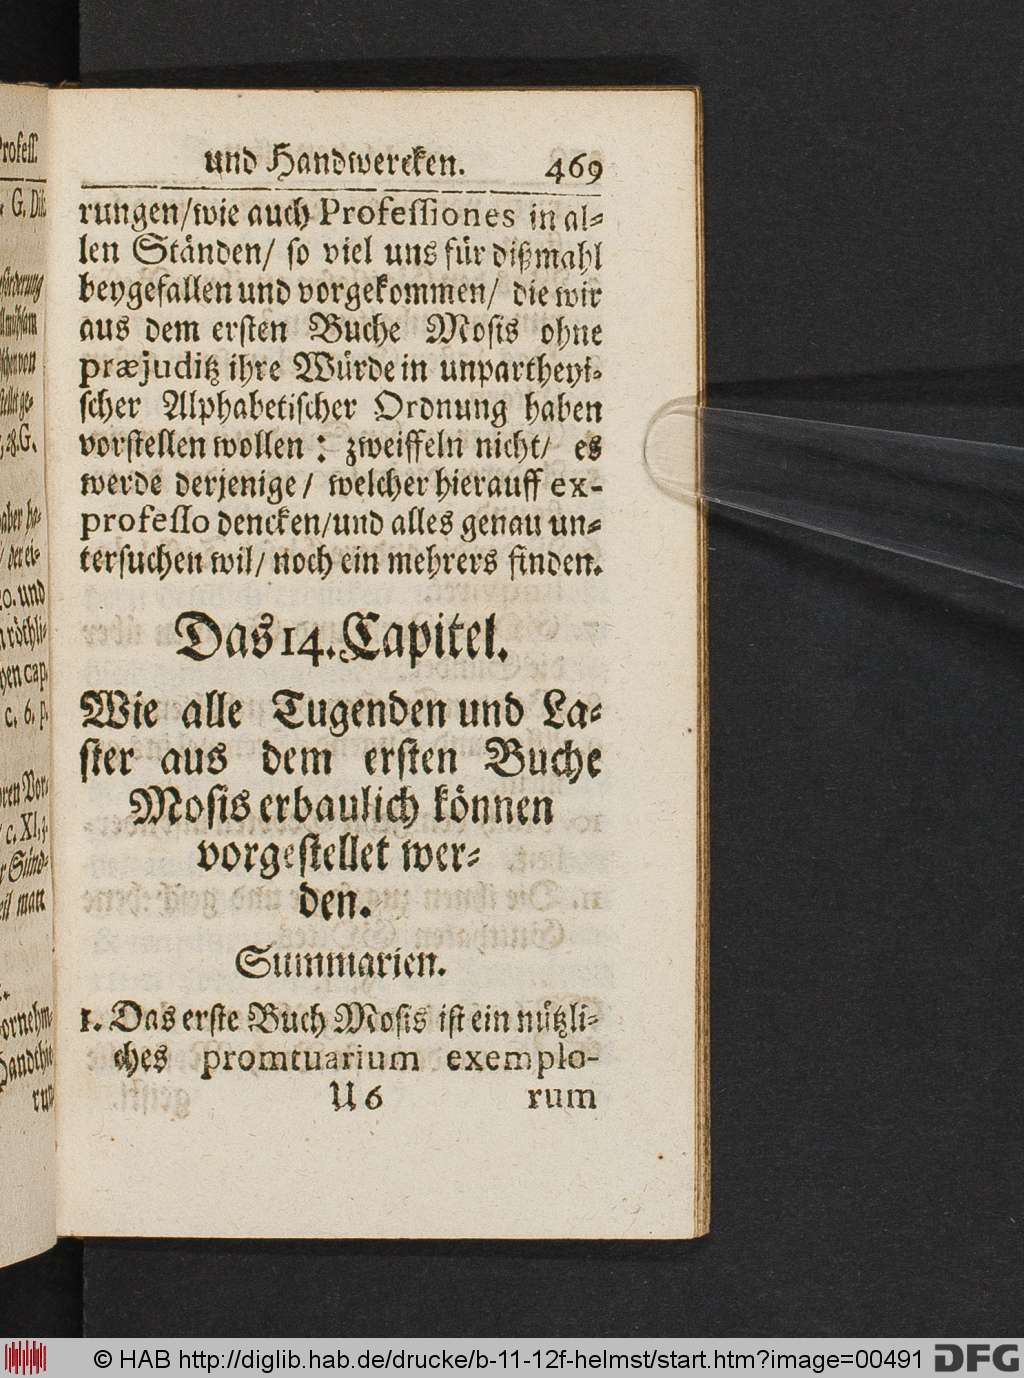 und Handwercken. 469
rungen/wie auch Professiones in al-
len Ständen/ so viel uns für dißmahl
beygefallen und vorgekommen/ die wir
aus dem ersten Buche Mosis ohne
præjuditz ihre Würde in unpartheyi-
scher Alphabetischer Ordnung haben
vorstellen wollen: zweiffeln nicht/ es
werde derjenige/ welcher hierauff ex-
professo dencken/und alles genau un-
tersuchen wil/ noch ein mehrers finden.
Das 14. Capitel.
Wie alle Tugenden und La-
ster aus dem ersten Buche
Mosis erbaulich können
vorgestellet wer-
den.
Summarien.
1. Das erste Buch Mosis ist ein nützli-
ches promtuarium exemplo-
U 6 rum
© HAB http://diglib.hab.de/drucke/b-11-12f-helmst/start.htm?image=00491 DFG